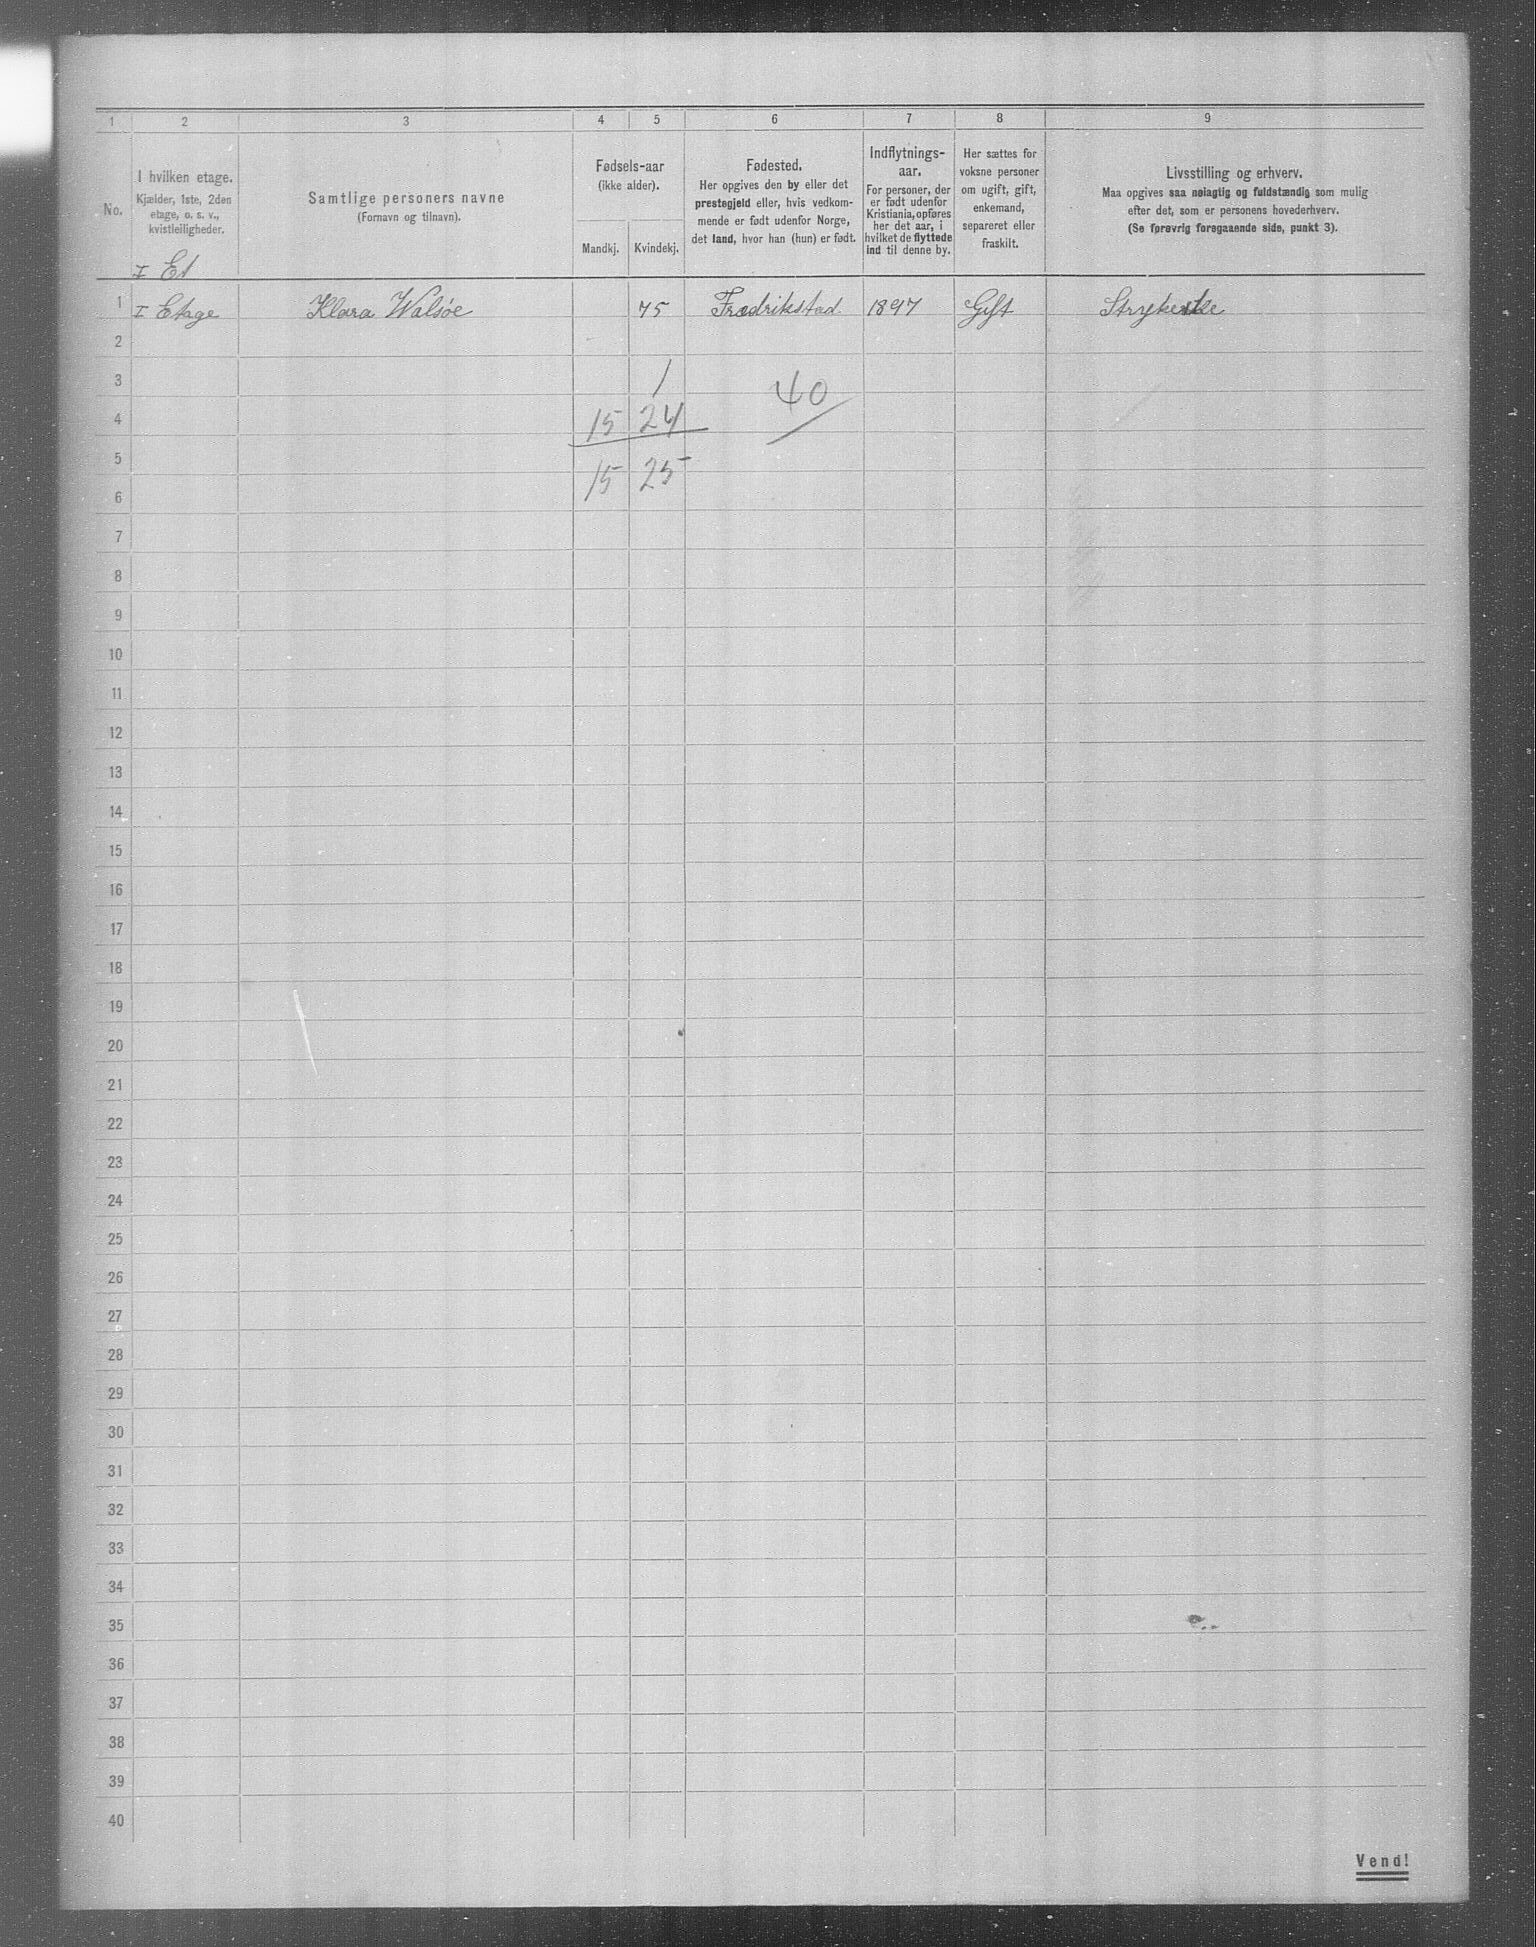 1 2 3 4 5 6 7 8 9
No.
I hvilken etage.
Kjælder, 1ste, 2den
etage, o. s. v.,
kvistleiligheder.
I Et
Samtlige personers navne
(Fornavn og tilnavn).
Fødsels-aar
(ikke alder).
Mandkj. Kvindekj.
Fødested.
Her opgives den by eller det
prestegjeld eller, hvis vedkom-
mende er født udenfor Norge,
det land, hvor han (hun) er født.
Indflytnings-
aar.
For personer, der
er født udenfor
Kristiania, opføres
her det aar, i
hvilket de flyttede
ind til denne by.
Her sættes for
voksne personer
om ugift, gift,
enkemand,
separeret eller
fraskilt.
Livsstilling og erhverv.
Maa opgives saa nøiagtig og fuldstændig som mulig
efter det, som er personens hovederhverv.
(Se forøvrig foregaaende side, punkt 3).
1 I Etage Klara Walsöe 75 Fredrikstad 1897 Gift
2
3 1
4 15 24 40
5
6 15 25
7
8
9
10
11
12
13
14
15
16
17
18
19
20
21
22
23
24
25
26
27
28
29
30
31
32
33
34
35
36
37
38
39
40
Vend!